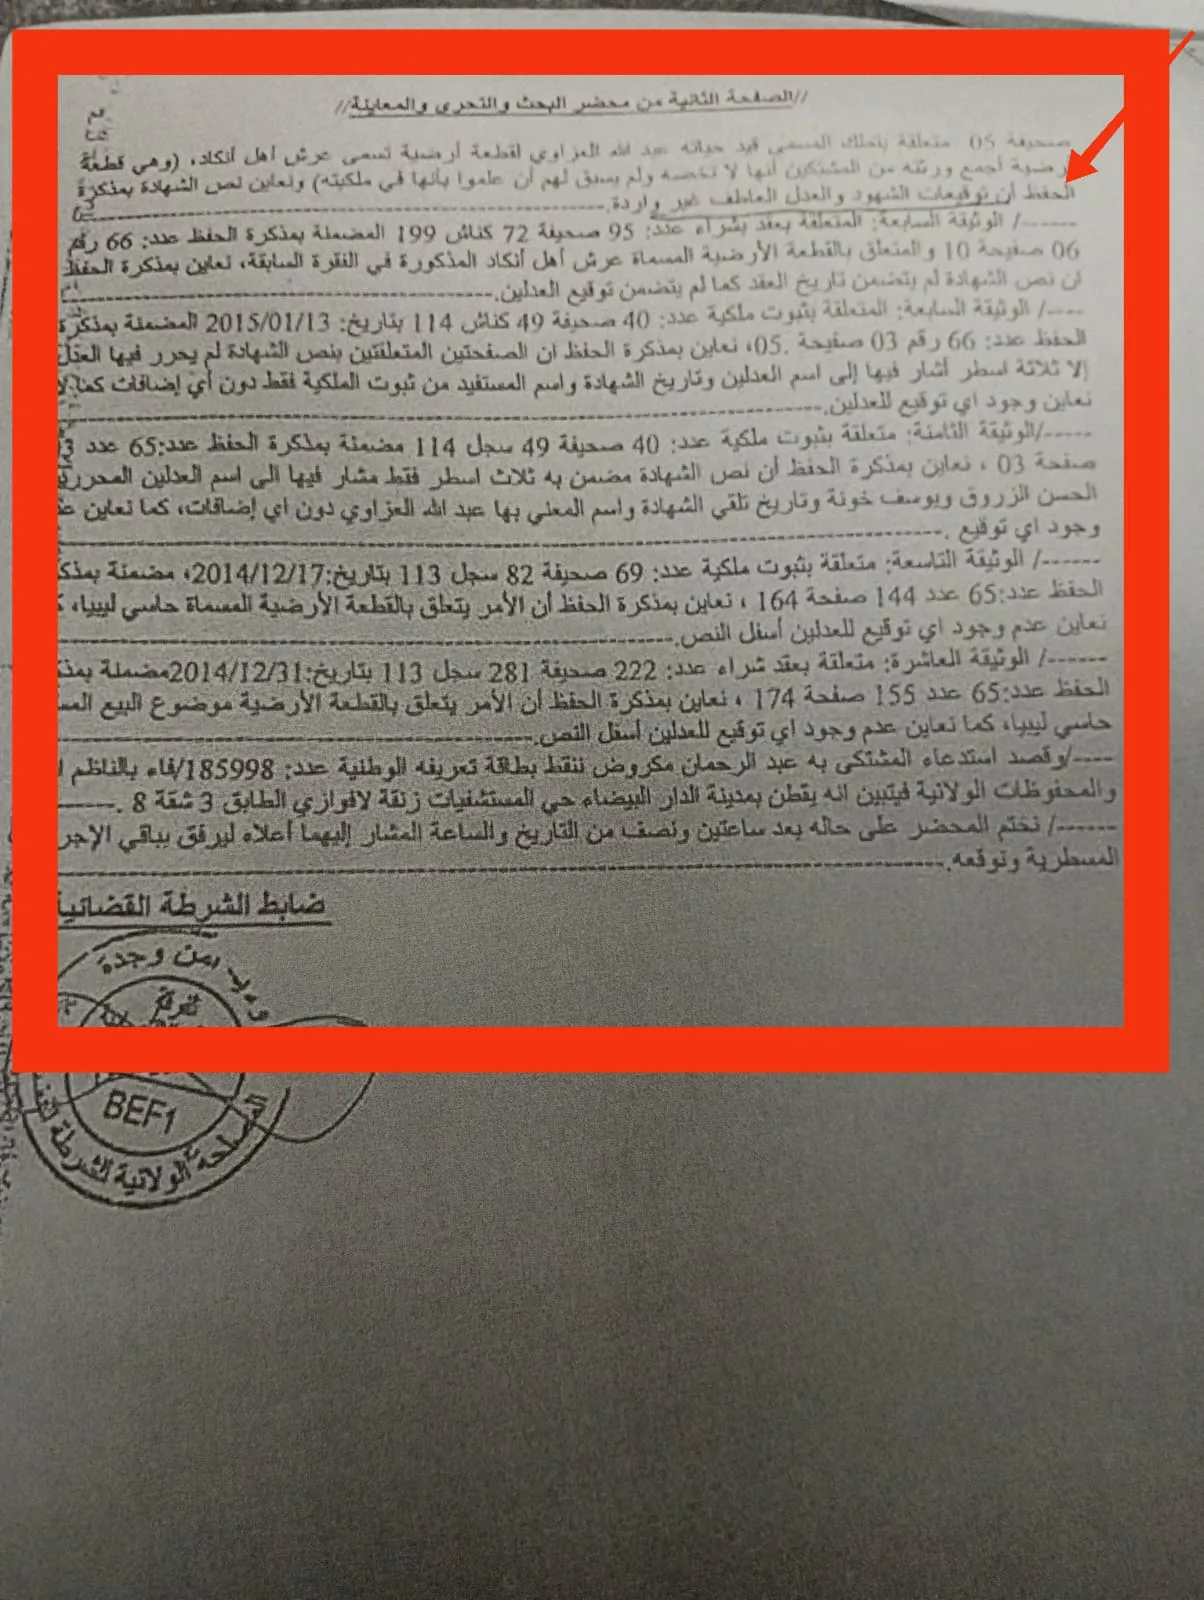 //الصفحة الثانية من محضر البحث والتحري والمعاينة//
صحيفة 05 متعلقة بتملك المسمى قيد حياته عبد الله العزاوي لقطعة أرضية تسمى عرش أهل أنكاد، (وهي قطعة
أرضية أجمع ورثته من المشتكين أنها لا تخصه ولم يسبق لهم أن علموا بأنها في ملكيته) ونعاين نص الشهادة بمذكرة
الحفظ أن توقيعات الشهود والعدل العاطف غير واردة.
------/ الوثيقة السابعة: المتعلقة بعقد بشراء عدد: 95 صحيفة 72 كناش 199 المضمنة بمذكرة الحفظ عدد: 66 رقم
06 صفيحة 10 والمتعلق بالقطعة الأرضية المسماة عرش أهل أنكاد المذكورة في الفقرة السابقة، نعاين بمذكرة الحفظ
ان نص الشهادة لم يتضمن تاريخ العقد كما لم يتضمن توقيع العدلين.
----/ الوثيقة السابعة: المتعلقة بثبوت ملكية عدد: 40 صحيفة 49 كناش 114 بتاريخ: 2015/01/13 المضمنة بمذكرة
الحفظ عدد: 66 رقم 03 صفيحة .05، نعاين بمذكرة الحفظ ان الصفحتين المتعلقتين بنص الشهادة لم يحرر فيها العدل
إلا ثلاثة اسطر أشار فيها إلى اسم العدلين وتاريخ الشهادة واسم المستفيد من ثبوت الملكية فقط دون أي إضافات كما لا
نعاين وجود اي توقيع للعدلين.
-----/الوثيقة الثامنة: متعلقة بثبوت ملكية عدد: 40 صحيفة 49 سجل 114 مضمنة بمذكرة الحفظ عدد:65 عدد 3
صفحة 03 ، نعاين بمذكرة الحفظ أن نص الشهادة مضمن به ثلاث اسطر فقط مشار فيها الى اسم العدلين المحررين
الحسن الزروق ويوسف خونة وتاريخ تلقي الشهادة واسم المعني بها عبد الله العزاوي دون أي إضافات، كما نعاين
وجود اي توقيع .
------/ الوثيقة التاسعة: متعلقة بثبوت ملكية عدد: 69 صحيفة 82 سجل 113 بتاريخ:2014/12/17، مضمنة
الحفظ عدد:65 عدد 144 صفحة 164 ، نعاين بمذكرة الحفظ أن الأمر يتعلق بالقطعة الأرضية المسماة حاسي ليبيا،
نعاين عدم وجود اي توقيع للعدلين أسفل النص.
------/ الوثيقة العاشرة: متعلقة بعقد شراء عدد: 222 صحيفة 281 سجل 113 بتاريخ:2014/12/31مضمنة
الحفظ عدد:65 عدد 155 صفحة 174 ، نعاين بمذكرة الحفظ أن الأمر يتعلق بالقطعة الأرضية موضوع البيع
حاسي ليبيا، كما نعاين عدم وجود اي توقيع للعدلين أسفل النص.
----/وقصد استدعاء المشتكى به عبد الرحمان مكروض ننقط بطاقة تعريفه الوطنية عدد: 185998/فاء بالناظم
والمحفوظات الولائية فيتبين انه يقطن بمدينة الدار البيضاء حي المستشفيات زنقة لافوازي الطابق 3 شقة 8 .
------/ نختم المحضر على حاله بعد ساعتين ونصف من التاريخ والساعة المشار إليهما أعلاه ليرفق بباقي
المسطرية ونوقعه.
ضابط الشرطة القضائية
أمن وجدة
BEF1
المصلحة الولائية للشرطة